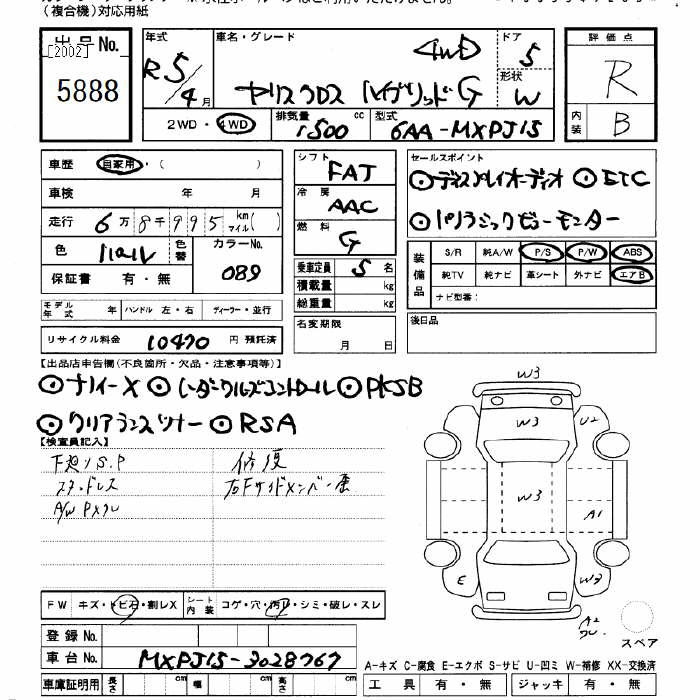 （複合機）対応用紙
出品No.
[2002]
5888
年式
R5/4月
車名・グレード
4WD
ヤリスクロス ハイブリッドG
ドア
5
形状
W
評価点
R
内装
B
2WD・4WD
排気量
1500 cc
型式
6AA-MXPJ15
車歴 自家用・（ ）
車検 年 月
走行 6万8千995 km マイル( )
色 パール 色替 カラーNo. 089
保証書 有・無
モデル年式 年 ハンドル 左・右 ディーラー・並行
リサイクル料金 10470 円 預託済
シフト FAT
冷房 AAC
燃料 G
乗車定員 5名
積載量 kg
総重量 kg
名変期限
月 日
セールスポイント
⊙ディスプレイオーディオ ⊙ETC
⊙パノラミックビューモニター
装備品
S/R 純A/W P/S P/W ABS
純TV 純ナビ 革シート 外ナビ エアB
ナビ型番：
後日品
【出品店申告欄(不良箇所・欠品・注意事項等)】
⊙ナノイーX ⊙レーダークルーズコントロール ⊙PKSB
⊙クリアランスソナー ⊙RSA
【検査員記入】
下廻りS.P 修復
スタッドレス 右Fサイドメンバー歪
A/W
W3
W3
U2
W3
A1
E
W3
A2
スペア
FW キズ・トビ石・割レX シート内装 コゲ・穴・汚レ・シミ・破レ・スレ
登録No.
車台No. MXPJ15-3028767
車庫証明用 長さ cm 幅 cm 高さ cm
A-キズ C-腐食 E-エクボ S-サビ U-凹ミ W-補修 XX-交換済
工具 有・無 ジャッキ 有・無